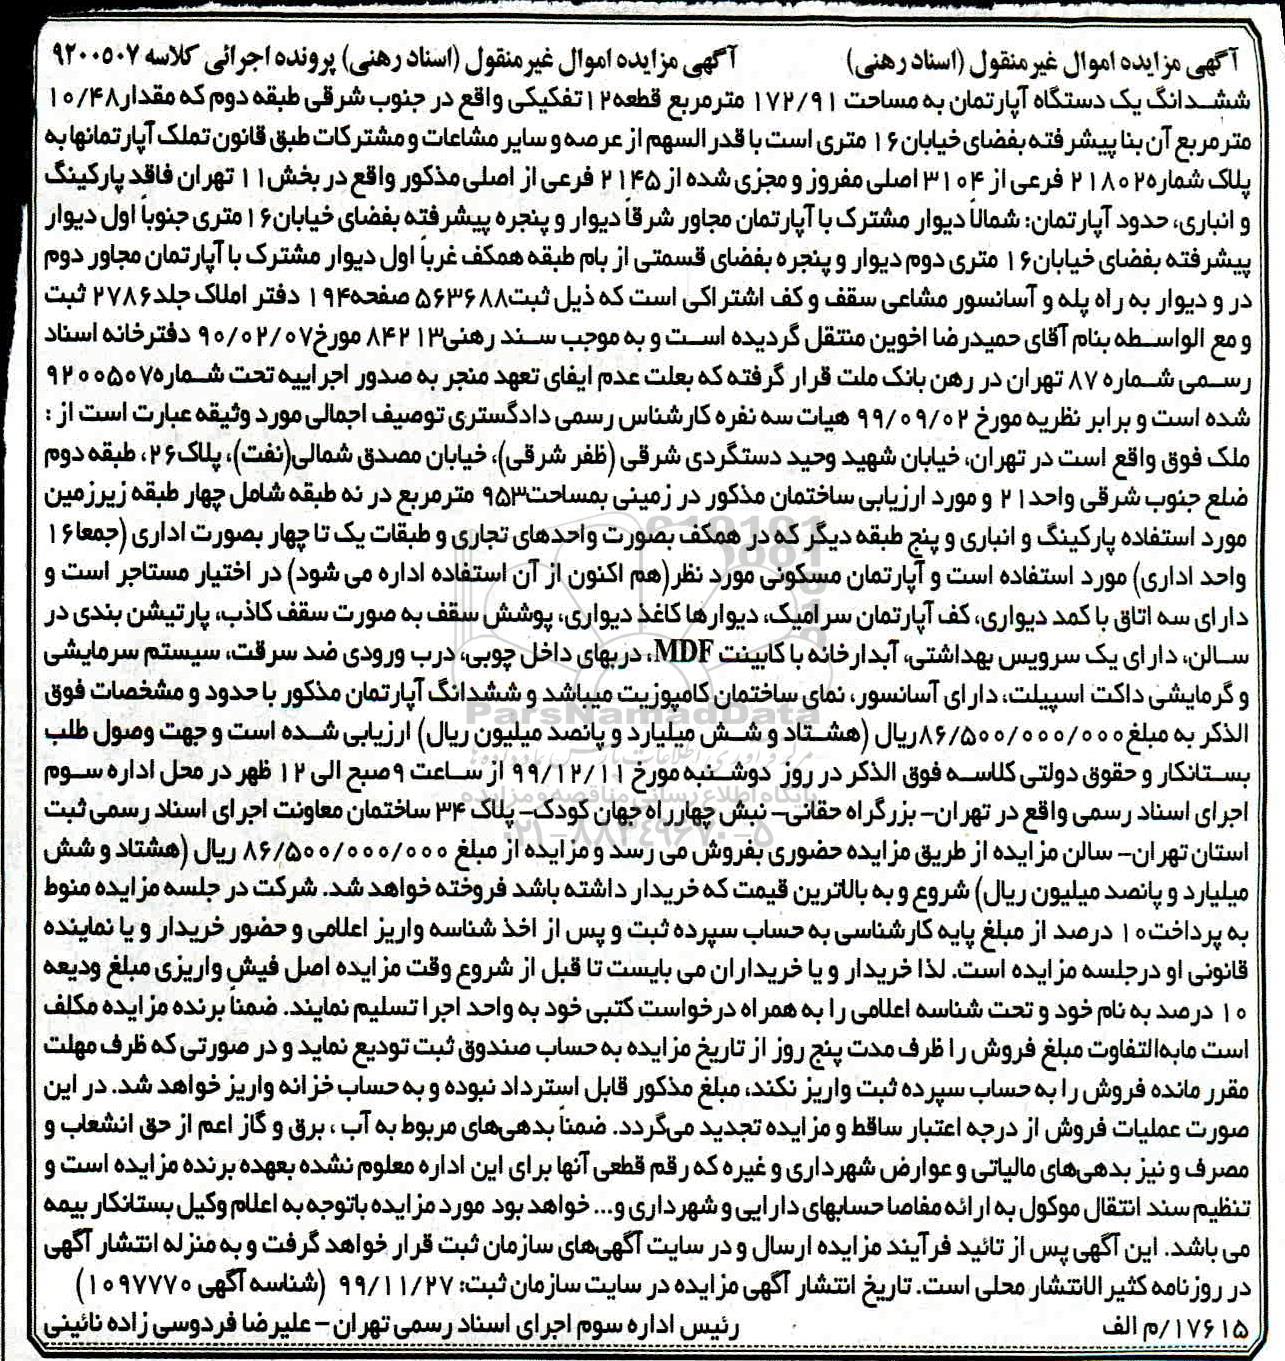 آگهی مزایده اموال غیرمنقول (اسناد رهنی) آگهی مزایده اموال غیرمنقول (اسناد رهنی) پرونده اجرائی کلاسه ۹۲۰۰۵۰۷
ششدانگ یک دستگاه آپارتمان به مساحت ۱۷۲/۹۱ مترمربع قطعه۱۲تفکیکی واقع در جنوب شرقی طبقه دوم که مقدار۱۰/۴۸
مترمربع آن بنا پیشرفته بفضای خیابان۱۶ متری است با قدرالسهم از عرصه و سایر مشاعات و مشترکات طبق قانون تملک آپارتمانها به
پلاک شماره۲۱۸۰۲ فرعی از ۳۱۰۴ اصلی مفروز و مجزی شده از ۲۱۴۵ فرعی از اصلی مذکور واقع در بخش۱۱ تهران فاقد پارکینگ
و انباری، حدود آپارتمان: شمالاً دیوار مشترک با آپارتمان مجاور شرقاً دیوار و پنجره پیشرفته بفضای خیابان۱۶متری جنوباً اول دیوار
پیشرفته بفضای خیابان۱۶ متری دوم دیوار و پنجره بفضای قسمتی از بام طبقه همکف غرباً اول دیوار مشترک با آپارتمان مجاور دوم
در و دیوار به راه پله و آسانسور مشاعی سقف و کف اشتراکی است که ذیل ثبت۵۶۳۶۸۸ صفحه۱۹۴ دفتر املاک جلد۲۷۸۶ ثبت
و مع الواسطه بنام آقای حمیدرضا اخوین منتقل گردیده است و به موجب سند رهنی۸۴۲۱۳ مورخ۹۰/۰۲/۰۷ دفترخانه اسناد
رسمی شماره ۸۷ تهران در رهن بانک ملت قرار گرفته که بعلت عدم ایفای تعهد منجر به صدور اجراییه تحت شماره۹۲۰۰۵۰۷
شده است و برابر نظریه مورخ ۹۹/۰۹/۰۲ هیات سه نفره کارشناس رسمی دادگستری توصیف اجمالی مورد وثیقه عبارت است از :
ملک فوق واقع است در تهران، خیابان شهید وحید دستگردی شرقی (ظفر شرقی)، خیابان مصدق شمالی(نفت)، پلاک۲۶، طبقه دوم
ضلع جنوب شرقی واحد۲۱ و مورد ارزیابی ساختمان مذکور در زمینی بمساحت۹۵۳ مترمربع در نه طبقه شامل چهار طبقه زیرزمین
مورد استفاده پارکینگ و انباری و پنج طبقه دیگر که در همکف بصورت واحدهای تجاری و طبقات یک تا چهار بصورت اداری (جمعا۱۶
واحد اداری) مورد استفاده است و آپارتمان مسکونی مورد نظر(هم اکنون از آن استفاده اداره می شود) در اختیار مستاجر است و
دارای سه اتاق با کمد دیواری، کف آپارتمان سرامیک، دیوارها کاغذ دیواری، پوشش سقف به صورت سقف کاذب، پارتیشن بندی در
سالن، دارای یک سرویس بهداشتی، آبدارخانه با کابینت MDF، دربهای داخل چوبی، درب ورودی ضد سرقت، سیستم سرمایشی
و گرمایشی داکت اسپیلت، دارای آسانسور، نمای ساختمان کامپوزیت میباشد و ششدانگ آپارتمان مذکور با حدود و مشخصات فوق
الذکر به مبلغ۸۶/۵۰۰/۰۰۰/۰۰۰ریال (هشتاد و شش میلیارد و پانصد میلیون ریال) ارزیابی شده است و جهت وصول طلب
بستانکار و حقوق دولتی کلاسه فوق الذکر در روز دوشنبه مورخ ۹۹/۱۲/۱۱ از ساعت ۹صبح الی ۱۲ ظهر در محل اداره سوم
اجرای اسناد رسمی واقع در تهران- بزرگراه حقانی- نبش چهارراه جهان کودک- پلاک ۳۴ ساختمان معاونت اجرای اسناد رسمی ثبت
استان تهران- سالن مزایده از طریق مزایده حضوری بفروش می رسد و مزایده از مبلغ ۸۶/۵۰۰/۰۰۰/۰۰۰ ریال (هشتاد و شش
میلیارد و پانصد میلیون ریال) شروع و به بالاترین قیمت که خریدار داشته باشد فروخته خواهد شد. شرکت در جلسه مزایده منوط
به پرداخت۱۰ درصد از مبلغ پایه کارشناسی به حساب سپرده ثبت و پس از اخذ شناسه واریز اعلامی و حضور خریدار و یا نماینده
قانونی او درجلسه مزایده است. لذا خریدار و یا خریداران می بایست تا قبل از شروع وقت مزایده اصل فیش واریزی مبلغ ودیعه
۱۰ درصد به نام خود و تحت شناسه اعلامی را به همراه درخواست کتبی خود به واحد اجرا تسلیم نمایند. ضمناً برنده مزایده مکلف
است مابه‌التفاوت مبلغ فروش را ظرف مدت پنج روز از تاریخ مزایده به حساب صندوق ثبت تودیع نماید و در صورتی که ظرف مهلت
مقرر مانده فروش را به حساب سپرده ثبت واریز نکند، مبلغ مذکور قابل استرداد نبوده و به حساب خزانه واریز خواهد شد. در این
صورت عملیات فروش از درجه اعتبار ساقط و مزایده تجدید می‌گردد. ضمناً بدهی‌های مربوط به آب ، برق و گاز اعم از حق انشعاب و
مصرف و نیز بدهی‌های مالیاتی و عوارض شهرداری و غیره که رقم قطعی آنها برای این اداره معلوم نشده بعهده برنده مزایده است و
تنظیم سند انتقال موکول به ارائه مفاصا حسابهای دارایی و شهرداری و... خواهد بود مورد مزایده باتوجه به اعلام وکیل بستانکار بیمه
می باشد. این آگهی پس از تائید فرآیند مزایده ارسال و در سایت آگهی‌های سازمان ثبت قرار خواهد گرفت و به منزله انتشار آگهی
در روزنامه کثیرالانتشار محلی است. تاریخ انتشار آگهی مزایده در سایت سازمان ثبت: ۹۹/۱۱/۲۷ (شناسه آگهی ۱۰۹۷۷۷۰)
۱۷۶۱۵/م الف رئیس اداره سوم اجرای اسناد رسمی تهران - علیرضا فردوسی زاده نائینی
ParsNamadData
پایگاه اطلاع رسانی مناقصه و مزایده
۰۲۱-۸۸۳۴۹۶۷۰-۵